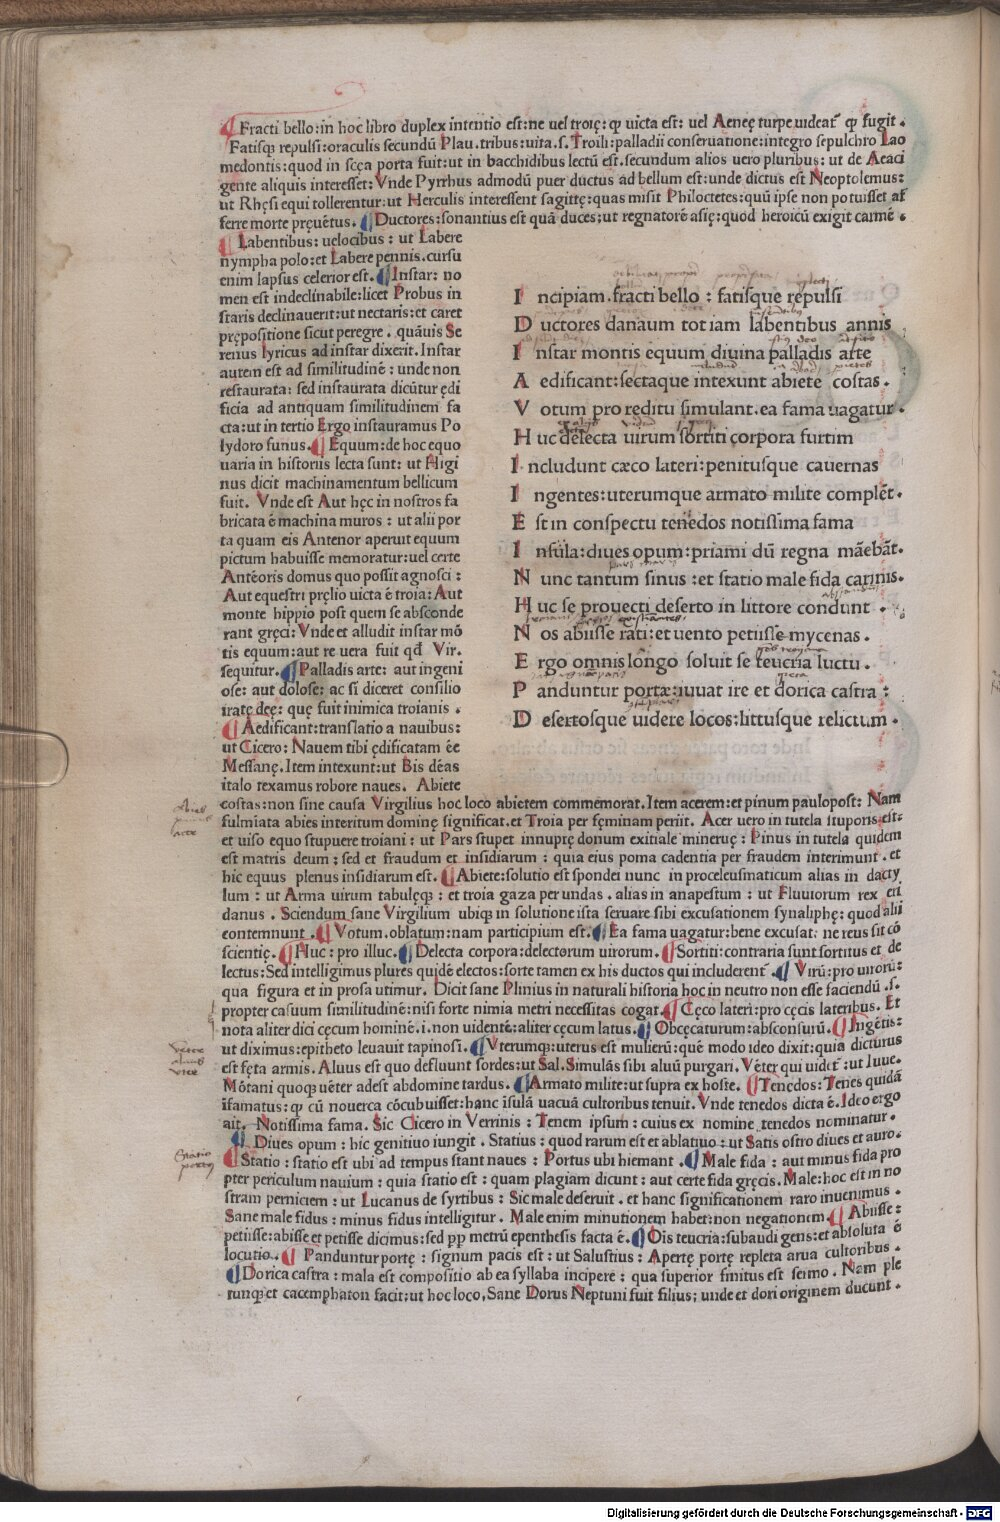 Fracti bello: in hoc libro duplex intentio est: ne uel troię: ꝙ uicta est: uel Aeneę turpe uideat᷑ ꝙ fugit.
Fatisqꝫ repulsi: oraculis secundū Plau. tribus: uita .s. Troili: palladii conseruatione: integro sepulchro Lao
medontis: quod in scęa porta fuit: ut in bacchidibus lectū est. secundum alios uero pluribus: ut de Aeaci
gente aliquis interesset: Vnde Pyrrhus admodū puer ductus ad bellum est: unde dictus est Neoptolemus:
ut Rhęsi equi tollerentur: ut Herculis interessent sagittę: quas misit Philoctetes: quū ipse non potuisset af
ferre morte pręuētus. Ductores: sonantius est quā duces; ut regnatorē asię: quod heroicū exigit carmē.
Labentibus: uelocibus: ut Labere
nympha polo: et Labere pennis. cursu
enim lapsus celerior est. Instar: no
men est indeclinabile: licet Probus in
staris declinauerit: ut nectaris: et caret
prępositione sicut peregre. quāuis Se
renus lyricus ad instar dixerit. Instar
autem est ad similitudinē: unde non
restaurata: sed instaurata dicūtur ędi
ficia ad antiquam similitudinem fa
cta: ut in tertio Ergo instauramus Po
lydoro funus. Equum: de hoc equo
uaria in historiis lecta sunt: ut Higi
nus dicit machinamentum bellicum
fuit. Vnde est Aut hęc in nostros fa
bricata ē machina muros: ut alii por
ta quam eis Antenor aperuit equum
pictum habuisse memoratur: uel certe
Antēoris domus quo possit agnosci:
Aut equestri pręlio uicta ē troia: Aut
monte hippio post quem se absconde
rant gręci: Vnde et alludit instar mō
tis equum: aut re uera fuit qđ Vir.
sequitur. Palladis arte: aut ingeni
ose: aut dolose: ac si diceret consilio
iratę deę: quę fuit inimica troianis.
Aedificant: translatio a nauibus:
ut Cicero: Nauem tibi ędificatam ēe
Messanę. Item intexunt: ut Bis dēas
italo texamus robore naues. Abiete
I ncipiam. fracti bello: fatisque repulsi
D uctores danaum tot iam labentibus annis
I nstar montis equum diuina palladis arte
A edificant: sectaque intexunt abiete costas.
V otum pro reditu simulant. ea fama uagatur.
H uc delecta uirum sortiti corpora furtim
I ncludunt cæco lateri: penitusque cauernas
I ngentes: uterumque armato milite complēt.
E st in conspectu tenedos notissima fama
I nsula: diues opum: priami dū regna māebāt.
N unc tantum sinus: et statio male fida carinis.
H uc se prouecti deserto in littore condunt.
N os abiisse rati: et uento petiisse mycenas.
E rgo omnis longo soluit se teucria luctu.
P anduntur portæ: iuuat ire et dorica castra:
D esertosque uidere locos: littusque relictum.
costas: non sine causa Virgilius hoc loco abietem commemorat. Item acerem: et pinum paulopost: Nam
fulmiata abies interitum dominę significat. et Troia per fęminam periit. Acer uero in tutela stuporis est:
et uiso equo stupuere troiani: ut Pars stupet innuptę donum exitiale mineruę: Pinus in tutela quidem
est matris deum: sed et fraudum et insidiarum: quia eius poma cadentia per fraudem interimunt. et
hic equus plenus insidiarum est. Abiete: solutio est spondei nunc in proceleusmaticum alias in dacty
lum: ut Arma uirum tabulęqꝫ: et troia gaza per undas. alias in anapestum: ut Fluuiorum rex eri
danus. Sciendum sane Virgilium ubiqꝫ in solutione ista seruare sibi excusationem synaliphę: quod alii
contemnunt. Votum. oblatum: nam participium est. Ea fama uagatur: bene excusat: ne reus sit cō
scientię. Huc: pro illuc. Delecta corpora: delectorum uirorum. Sortiti: contraria sunt sortitus et de
lectus: Sed intelligimus plures quidē electos: sorte tamen ex his ductos qui includerent᷑. Virū: pro uirorū:
qua figura et in prosa utimur. Dicit sane Plinius in naturali historia hoc in neutro non esse faciendū .s.
propter casuum similitudinē: nisi forte nimia metri necessitas cogat. Cęco lateri: pro cęcis lateribus. Et
nota aliter dici cęcum hominē .i. non uidentē: aliter cęcum latus. Obcęcaturum: absconsurū. Ingētis:
ut diximus: epitheto leuauit tapinosi. Vterumqꝫ: uterus est mulierū: quē modo ideo dixit: quia dicturus
est fęta armis. Aluus est quo defluunt sordes: ut Sal. Simulās sibi aluū purgari. Vēter qui uidet᷑: ut Iuue.
Mōtani quoqꝫ uēter adest abdomine tardus. Armato milite: ut supra ex hoste. Tenedos: Tenes quidā
īfamatus: ꝙ cū nouerca cōcubuisset: hanc īsulā uacuā cultoribus tenuit. Vnde tenedos dicta ē. Ideo ergo
ait. Notissima fama. Sic Cicero in Verrinis: Tenem ipsum: cuius ex nomine tenedos nominatur.
Diues opum: hic genitiuo iungit. Statius: quod rarum est et ablatiuo: ut Satis ostro diues et auro.
Statio: statio est ubi ad tempus stant naues: Portus ubi hiemant. Male fida: aut minus fida pro
pter periculum nauium: quia statio est: quam plagiam dicunt: aut certe fida gręcis. Male: hoc est in no
stram perniciem: ut Lucanus de syrtibus: Sic male deseruit. et hanc significationem raro inuenimus.
Sane male fidus: minus fidus intelligitur. Male enim minutionem habet: non negationem. Abiisse:
petiisse: abisse et petisse dicimus: sed pp metrū epenthesis facta ē. Ois teucria: subaudi gens: et absoluta ē
locutio. Panduntur portę: signum pacis est: ut Salustius: Apertę portę repleta arua cultoribus.
Dorica castra: mala est compositio ab ea syllaba incipere: qua superior finitus est sermo. Nam ple
runqꝫ et cacemphaton facit: ut hoc loco, Sane Dorus Neptuni fuit filius; unde et dori originem ducunt.
Digitalisierung gefördert durch die Deutsche Forschungsgemeinschaft - DFG